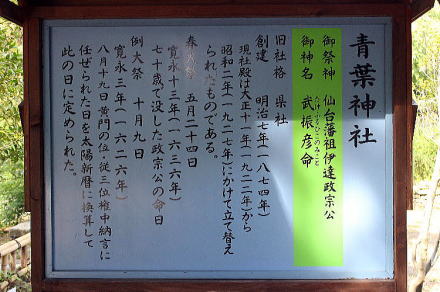 青葉神社
御祭神 仙台藩祖伊達政宗公
御神名 武振彦命
たけふるひこのみこと
旧社格 県社
創建 明治七年(一八七四年)
現社殿は大正十一年(一九二二年)から
昭和二年(一九二七年)にかけて立て替え
られたものである。
五月二十四日
寛永十三年(一六三六年)
七十歳で没した政宗公の命日
例大祭 十月九日
寛永三年(一六二六年)
八月十九日黄門の位・従三位権中納言に
任ぜられた日を太陽新暦に換算して
此の日に定められた。